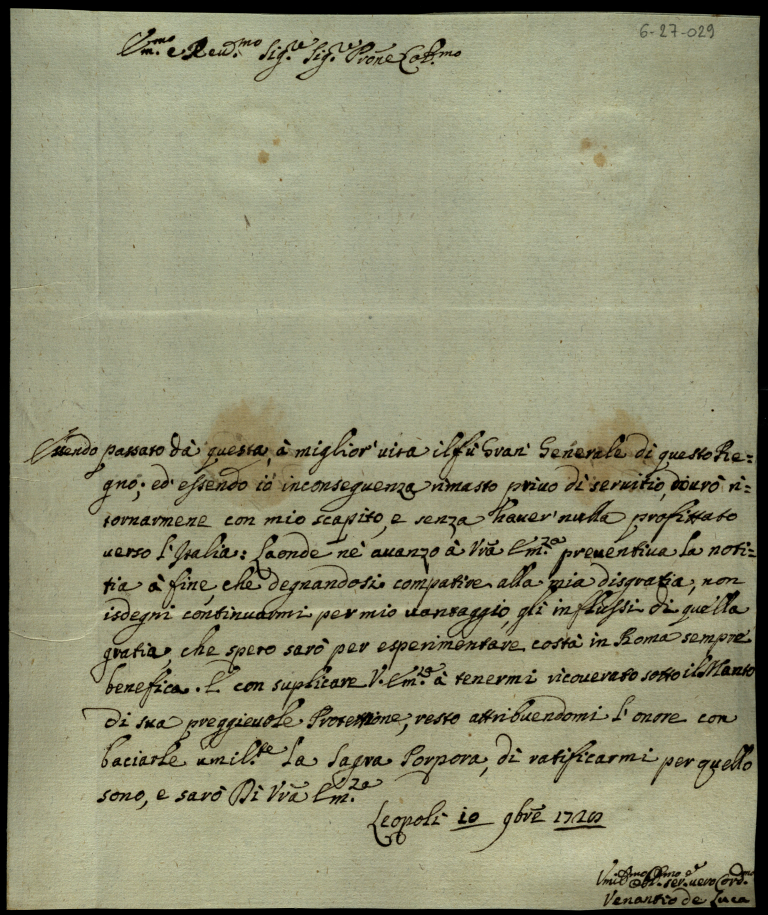 6-27-029
Em.mo e Reud.mo Sig.re Sig.re Prone Col.mo
Essendo passato dà questa, à miglior' uita il fù Gran' Generale di questo Re=
gno; ed' essendo io inconseguenza rimasto priuo di seruitio, dourò ri=
tornarmene con mio scapito, e senza hauer' nulla profittato
uerso l'Italia: Laonde nè auanzo à Vrã Em.za preuentiua la noti=
tia à fine, che degnandosi compatire alla mia disgratia, non
isdegni continuarmi per mio uantaggio, gli influssi di quella
gratia, che spero sarò per esperimentare costà in Roma sempre
benefica. E con suplicare V. Em.za à tenermi ricouerato sotto il Manto
di sua preggieuole Protettione, resto attribuendomi l'onore con
baciarle umil.te la Sagra Porpora, di ratificarmi per quello
sono, e sarò Di Vrã Em.za
Leopoli 10 9bre
Vmil.mo ser.re uero
Venantio de Luca